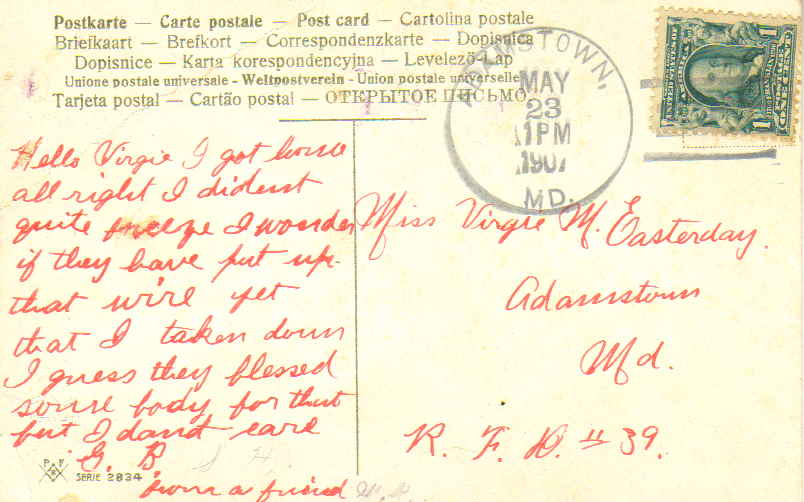 Postkarte — Carte postale — Post card — Cartolina postale
Briefkaart — Brefkort — Correspondenzkarte — Dopisnica
Dopisnice — Karta korespondencyjna — Levelező-Lap
Unione postale universale - Weltpostverein - Union postale universelle
Tarjeta postal — Cartão postal — ОТКРЫТОЕ ПИСЬМО
ADAMSTOWN,
MAY
23
1PM
1907
MD.
1 1
Hello Virgie I got home
all right I dident
quite freeze I wonder
if they have put up
that wire yet
that I taken down
I guess they blessed
some body for that
but I dont care
G. B.
from a friend
Miss Virgie M. Easterday.
Adamstown
Md.
R. F. D. # 39.
P F
SERIE 2834